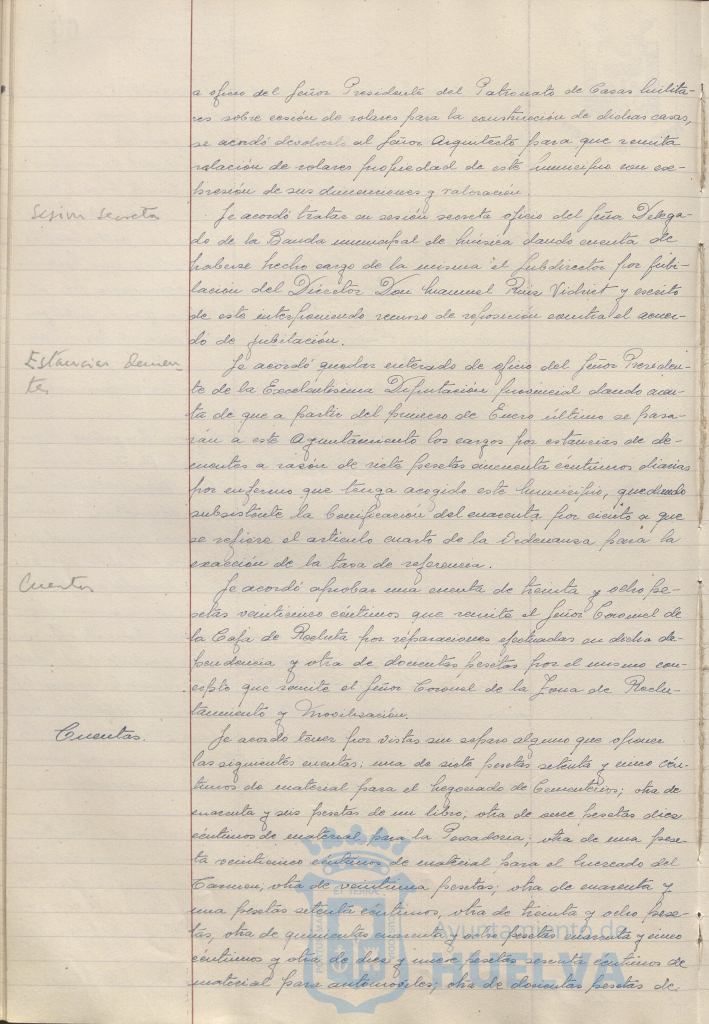 a oficio del Señor Presidente del Patronato de Casas Milita-
res sobre cesión de solares para la construcción de dichas casas,
se acordó devolverlo al Señor Arquitecto para que remita
relación de solares propiedad de este Municipio con ex-
presión de sus dimensiones y valoración.
Sesion secreta
Se acordó tratar en sesión secreta oficio del Señor Delega-
do de la Banda municipal de música dando cuenta de
haberse hecho cargo de la misma el Subdirector por jubi-
lación del Director Don Manuel Ruiz Vidriet y escrito
de este interponiendo recurso de reposición contra el acuer-
do de jubilación.
Estancias demen-
tes
Se acordó quedar enterado de oficio del Señor Presiden-
te de la Excelentísima Diputación provincial dando cuen-
ta de que a partir del primero de Enero último se pasa-
rán a este Ayuntamiento los cargos por estancias de de-
mentes a razón de siete pesetas cincuenta céntimos diarias
por enfermo que tenga acogido este Municipio, quedando
subsistente la bonificación del cincuenta por ciento a que
se refiere el artículo cuarto de la Ordenanza para la
exacción de la tasa de referencia.
Cuentas
Se acordó aprobar una cuenta de treinta y ocho pe-
setas veinticinco céntimos que remite el Señor Coronel de
la Caja de Recluta por reparaciones efectuadas en dicha de-
pendencia y otra de doscientas pesetas por el mismo con-
cepto que remite el Señor Coronel de la Zona de Reclu-
tamiento y Movilización.
Cuentas.
Se acordó tener por vistas sin reparo alguno que oponer
las siguientes cuentas; una de siete pesetas setenta y cinco cén-
timos de material para el Negociado de Cementerios; otra de
cuarenta y seis pesetas de un libro; otra de once pesetas diez
céntimos de material para la Pescadería; otra de una pese-
ta veinticinco céntimos de material para el Mercado del
Carmen, otra de veintiuna pesetas; otra de cuarenta y
una pesetas setenta céntimos, otra de treinta y ocho pese-
tas, otra de quinientas cuarenta y ocho pesetas cuarenta y cinco
céntimos y otra de diez y nueve pesetas sesenta céntimos de
material para automóviles; otra de doscientas pesetas de
Ayuntamiento de
HUELVA